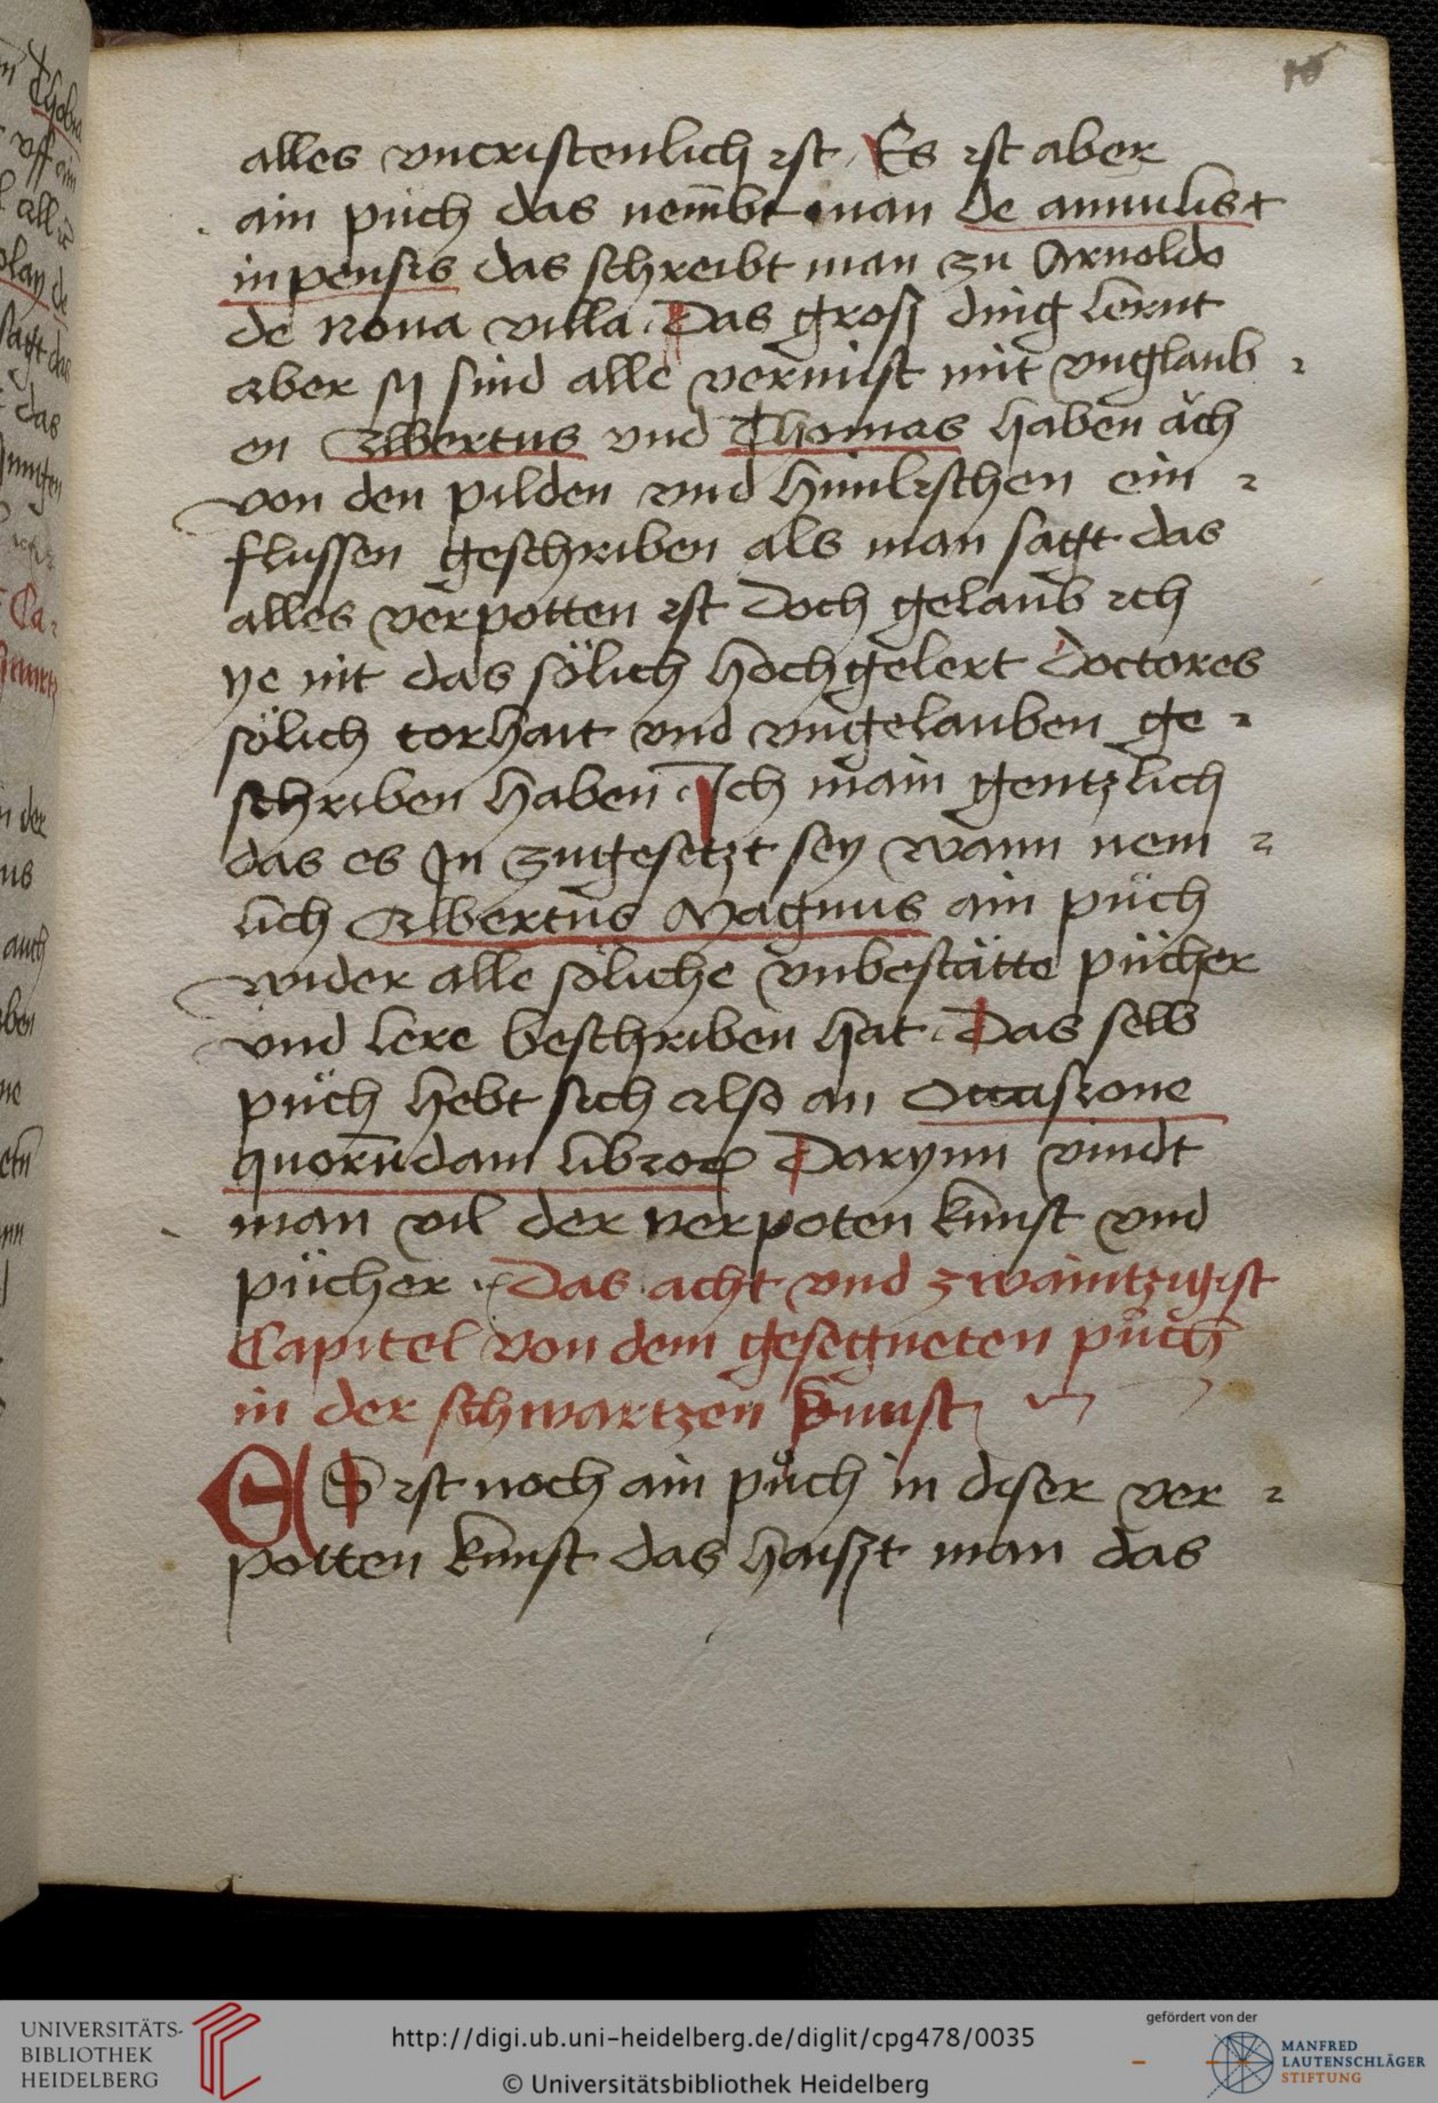 10
alles vncristenlich ist Es ist aber
ain puch das nembt man de annulis et
inpensis das schreibt man zu Arnoldo
de noua villa Das groß ding lernt
aber sy sind alle vermist mit vnglaub
en Albertus vnd Thomas haben ăch
von den pilden vnd himlischen ein
flussen geschriben als man sagt das
alles verpotten ist Doch gelaub ich
ye nit das sölich hochgelert Doctores
sölich torhait vnd vngelauben ge
schriben haben Ich main gentzlich
das es Jn zugesetzt sey wann nem
lich Albertus Magnus ain pùch
wider alle söliche vnbestätte pücher
vnd lere beschriben hat Das selb
pùch hebt sich also an Occasione
quorundam libror Darynn vindt
man vil der verpoten kunst vnd
pücher Das acht vnd zwaintzigist
Capitel von dem gesegneten pùch
in der schwartzen kunst
ES ist noch ain pùch in diser ver
potten kunst das haiszt man das
UNIVERSITÄTS-
BIBLIOTHEK
HEIDELBERG
http://digi.ub.uni-heidelberg.de/diglit/cpg478/0035
© Universitätsbibliothek Heidelberg
gefördert von der
MANFRED
LAUTENSCHLÄGER
STIFTUNG